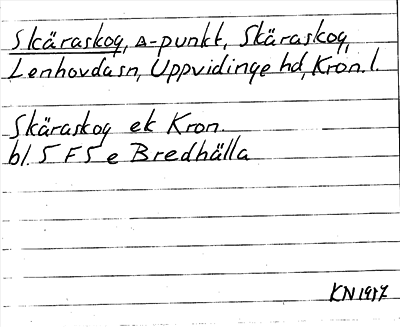 Skäraskog, △-punkt, Skäraskog,
Lenhovda sn, Uppvidinge hd, Kron. l.
Skäraskog ek Kron.
bl. 5 F 5 e Bredhälla